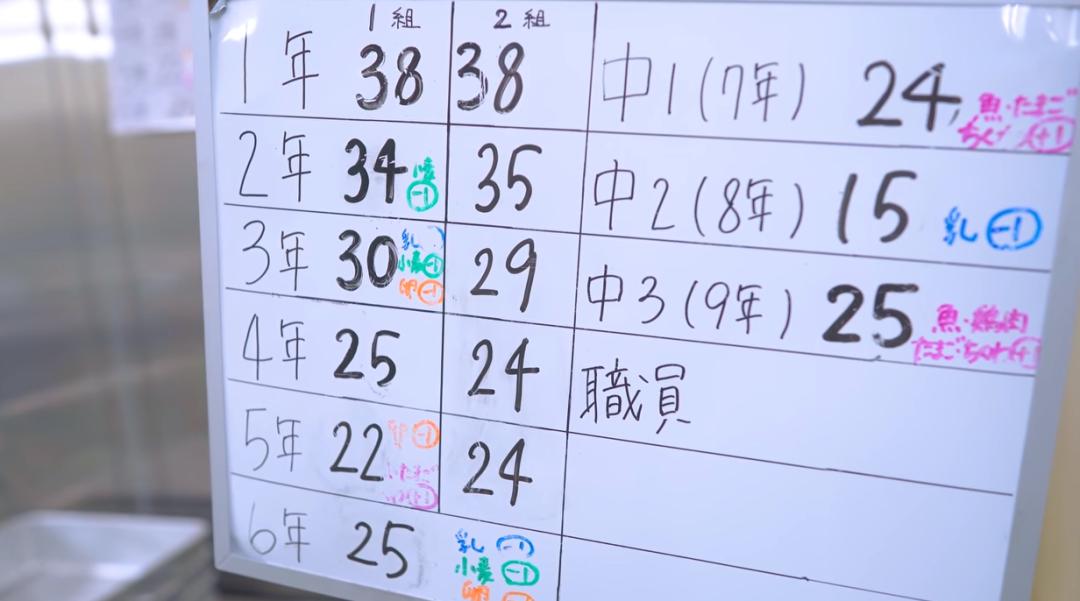 1組 2組
1年 38 38
2年 34 小麦 -1 35
3年 30 乳 小麦 -1 卵 -1 29
4年 25 24
5年 22 -1 たまご 24
6年 25 乳 -1 小麦 -1 卵
中1(7年) 24 魚・たまご
+1
中2(8年) 15 乳 -1
中3(9年) 25 魚・鶏肉
たまご・
職員